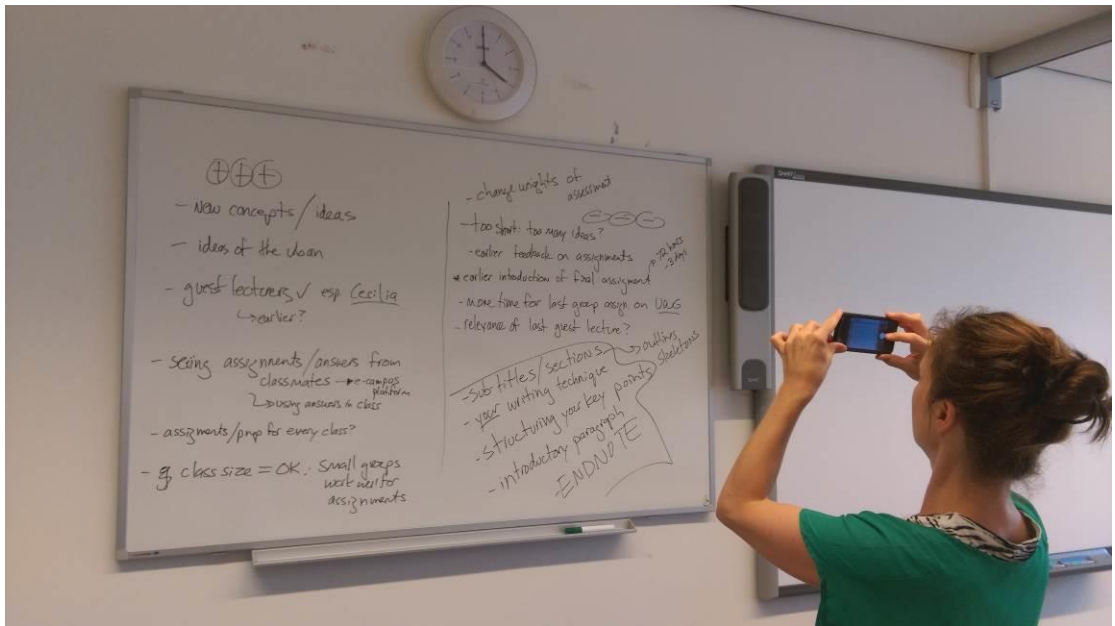 + + +
- New concepts/ideas
- ideas of the urban
- guest lecturers ✓ esp Cecilia
↳ earlier?
- seeing assignments/answers from
classmates → e-campus
platform
↳ using answers in class
- assignments/prep for every class?
- class size = OK. small groups
work well for
assignments
- change weights of
assessment
- - -
- too short: too many ideas?
- earlier feedback on assignments
→ 72 hours
- 3 days
* earlier introduction of final assignment
- more time for last group assign. on
- relevance of last guest lecture?
- subtitles/sections → outlines
skeletons
- your writing technique
- structuring your key points
- introductory paragraph
- ENDNOTE
SMART